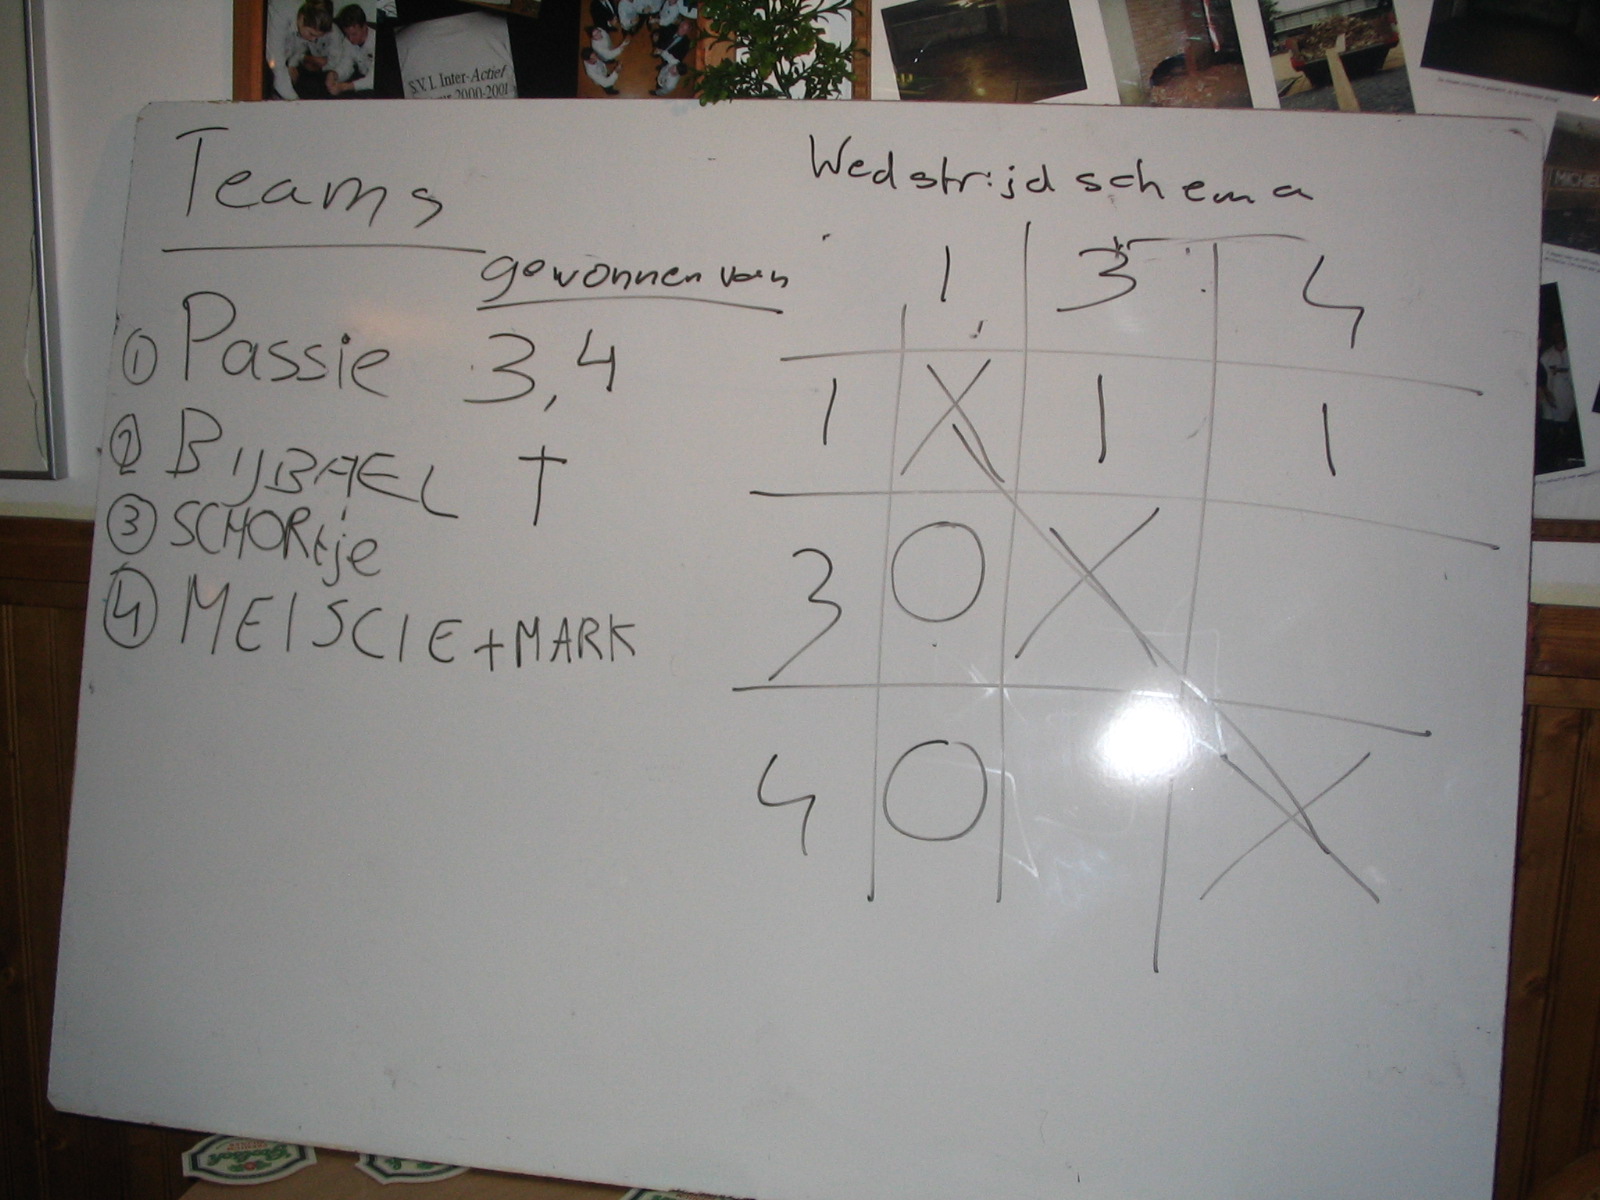 S.V.I. Inter-Actief
2000-2001
Teams
gewonnen van
① Passie 3,4
② BIJBAEL †
③ SCHORtje
④ MEISCIE + MARK
Wedstrijdschema
1 3 4
1 X 1 1
3 O X
4 O X